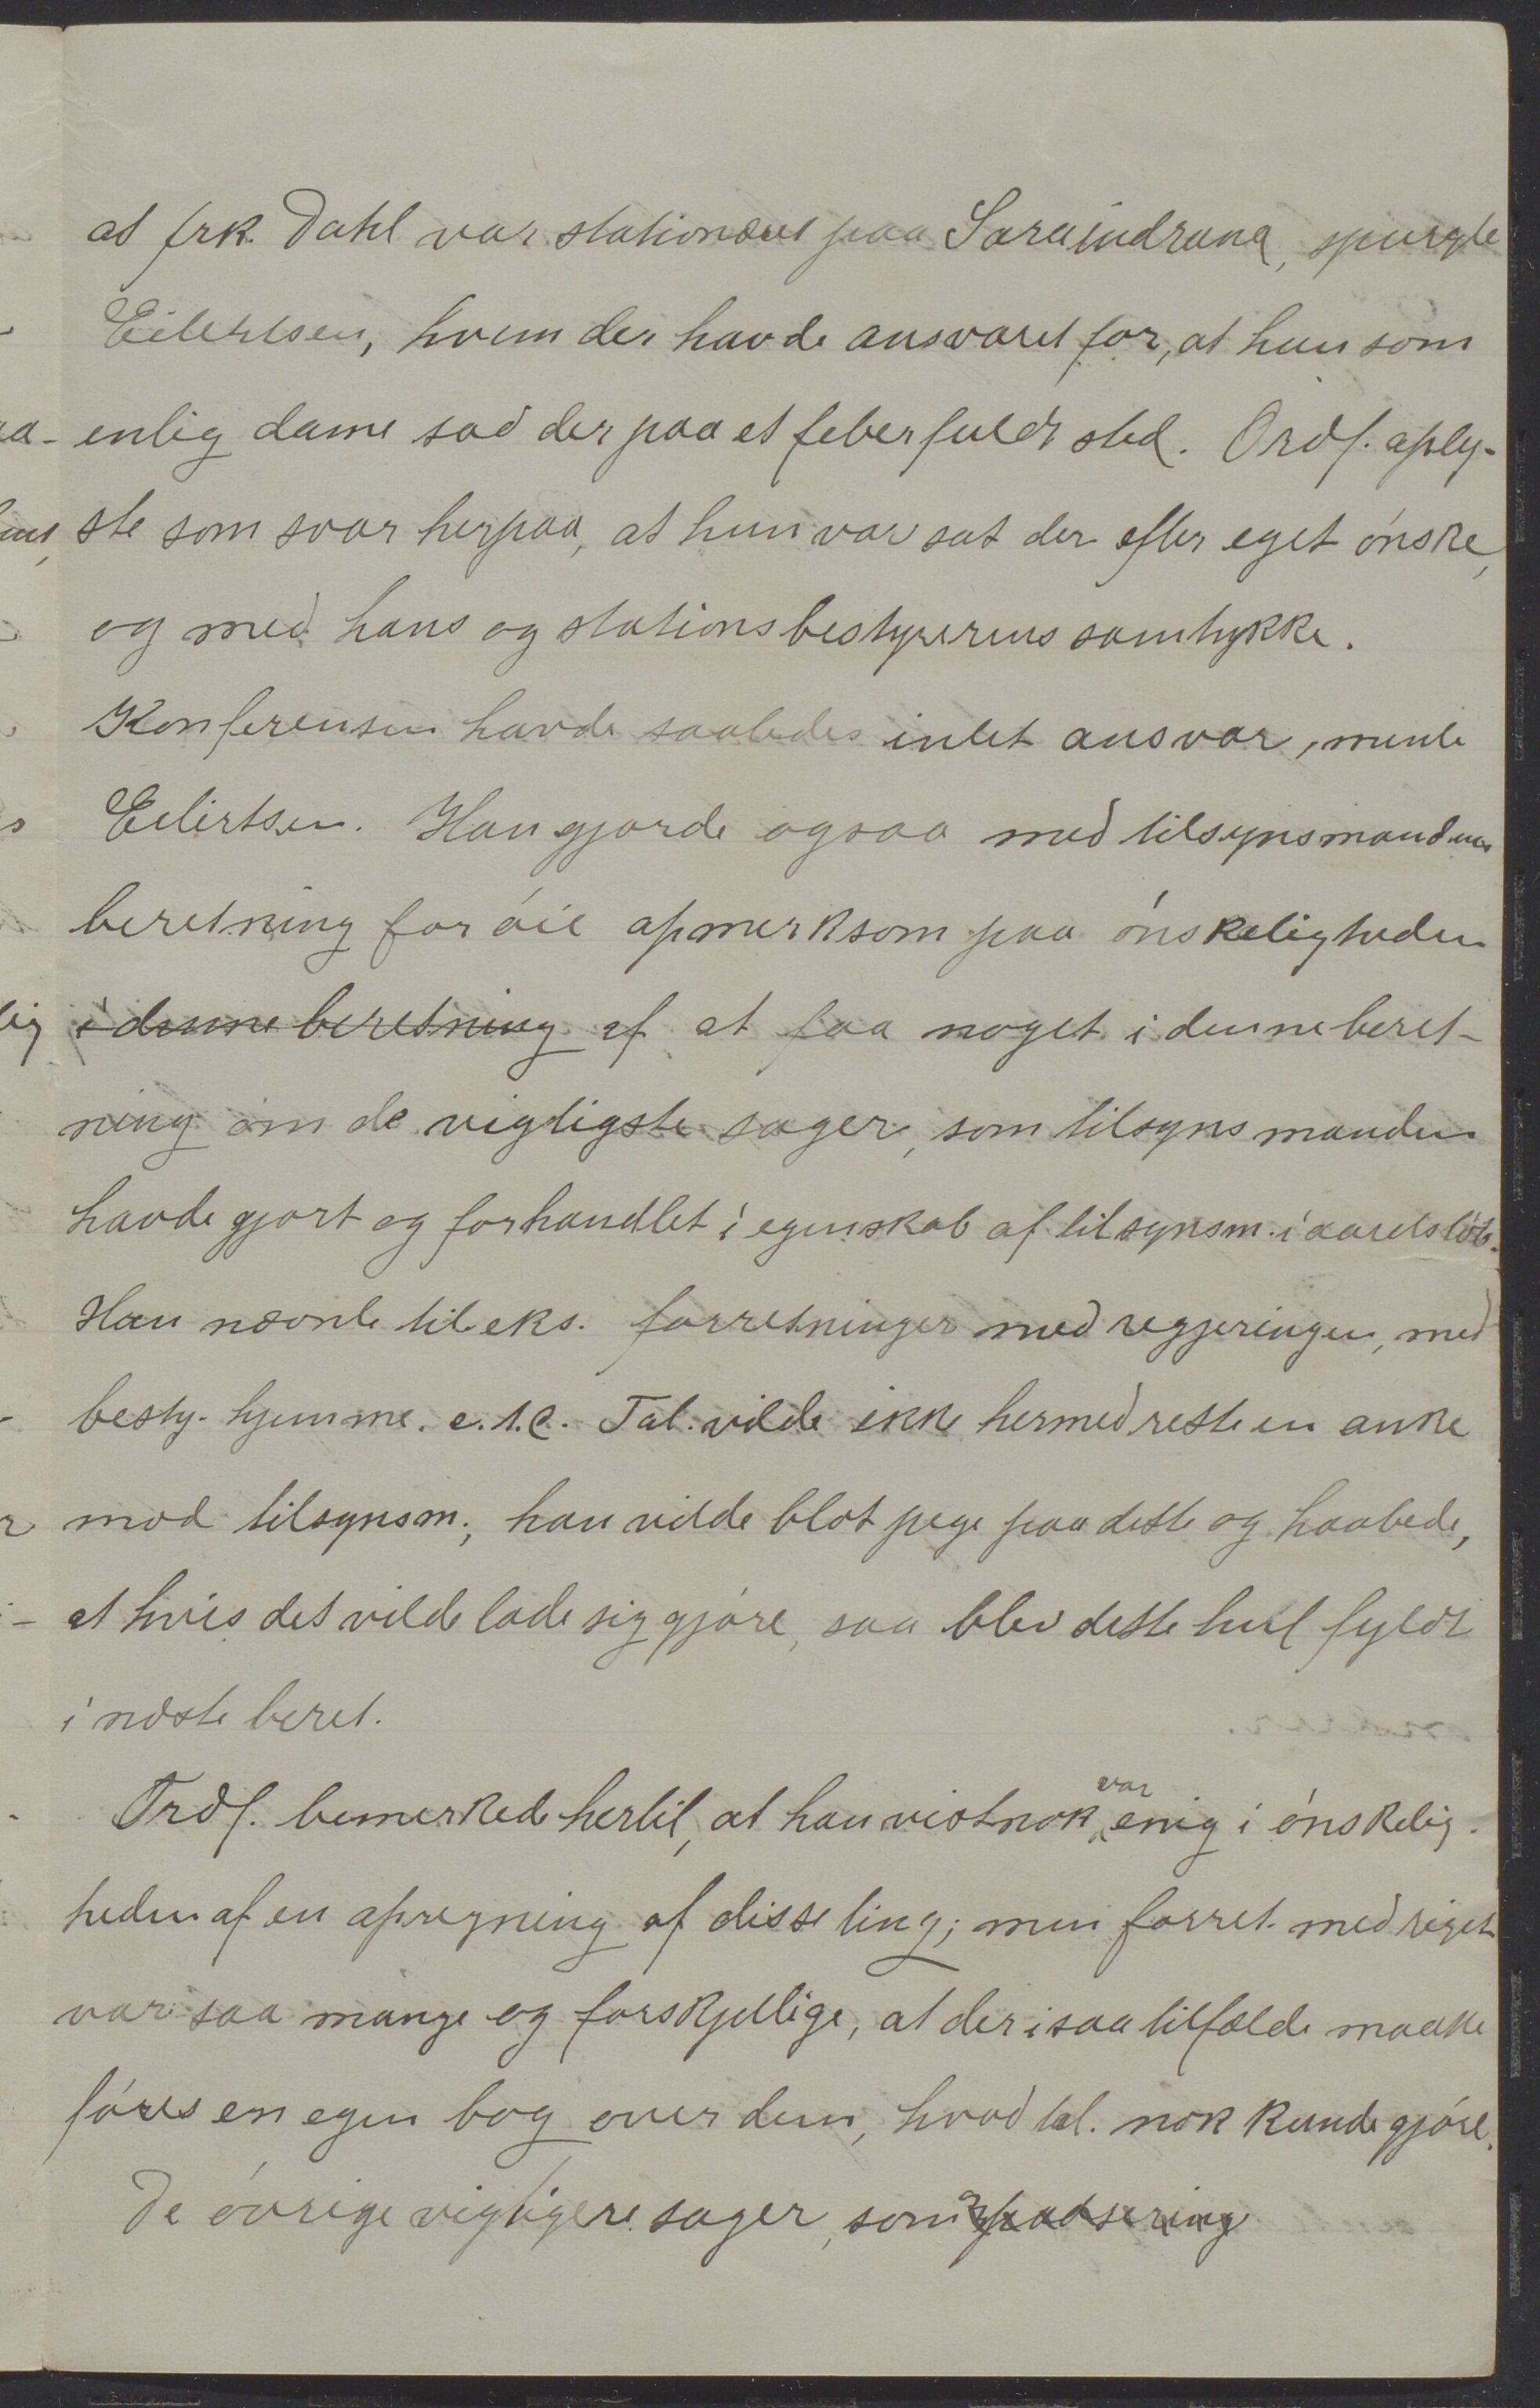 at frk. Dahl var stationæret paa Saraindrana, spurgte
Eilertsen, hvem der havde ansvaret for, at hun som
enlig dame sad der paa et feberfuldt sted. Ordf. oply-
ste som svar herpaa, at hun var sat der efter eget ónske,
og med hans og stationsbestyrerens samtykke.
Konferensen havde saaledes intet ansvar, mente
Eilertsen. Han gjorde ogsaa med tilsynsmandens
beretning for óie opmerksom paa ónskeligheden
i denne beretning af at faa noget i denne beret-
ning om de vigtigste sager, som tilsynsmanden
havde gjort og forhandlet i egenskab af tilsynsm. i aarets lób.
Han nævnte til eks. forretninger med regjeringen, med
besty. hjemme. e.t.c. Tal. vilde ikke hermed reste en anke
mod tilsynsm.; han vilde blot pege paa dette og haabede,
at hvis det vilde lade sig gjóre, saa blev dette hul fyldt
i næste beret.
Ordf. bemerkede hertil, at han vistnok var enig i ónskelig-
heden af en opregning af disse ting; men forret. med riget
var saa mange og forskjellige, at der i saa tilfælde maatte
fóres en egen bog over dem, hvad tal. nok kunde gjóre.
De óvrige vigtigere sager, som